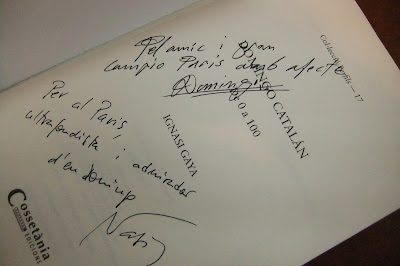 Col·lecció Perfils — 17
Pel amic i gran
campio Paris amb afecte
Domingo
DOMINGO CATALÁN
DE 0 a 100
IGNASI GAYA
Per al Paris,
ultrafondista i admirador
d'en Domingo
Cossetània
EDICIONS